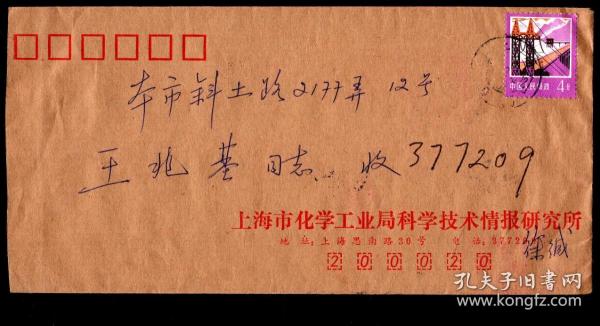 中国人民邮政 4分
本市斜土路2177弄 12号
王兆基同志 收 377209
上海市化学工业局科学技术情报研究所
地址:上海思南路30号 电话:3772
徐缄
200020
孔夫子旧书网
www.kongfz.com